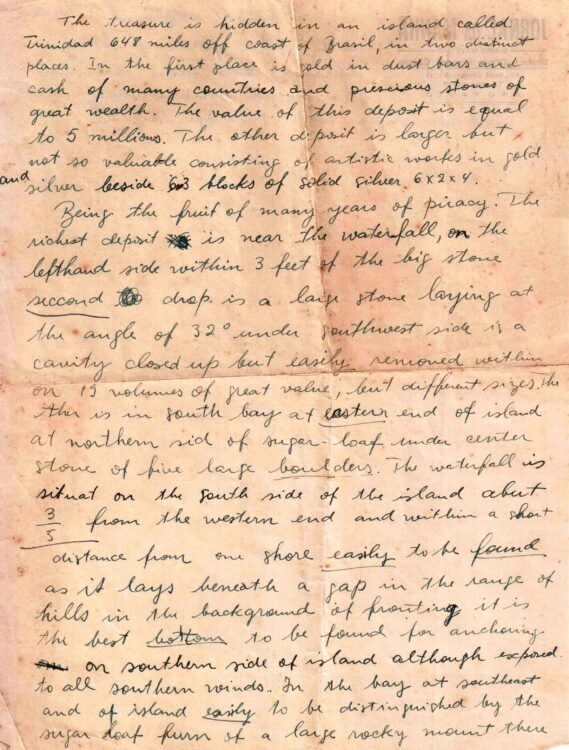 The treasure is hidden in an island called
Trinidad 648 miles off coast of Brasil, in two distinct
places. In the first place is gold in dust bars and
cash of many countries and prescious stones of
great wealth. The value of this deposit is equal
to 5 millions. The other deposit is larger but
not so valuable consisting of artistic works in gold
and silver beside 63 blocks of solid silver 6x2x4.
Being the fruit of many years of piracy. The
richest deposit is near the waterfall, on the
lefthand side within 3 feet of the big stone
seccond drop is a large stone laying at
the angle of 32° under southwest side is a
cavity closed up but easily removed within
on 13 volumes of great value, but different sizes. the
other is in south bay at eastern end of island
at northern sid of sugar-loaf under center
stone of five large boulders. The waterfall is
situat on the south side of the island abut
3/5 from the western end and within a short
distance from one shore easily to be found
as it lays beneath a gap in the range of
hills in the background of fronting it is
the best bottom to be found for anchoring
on southern side of island although exposed
to all southern winds. In the bay at southeast
and of island easily to be distinguished by the
sugar loaf furm of a large rocky mount there